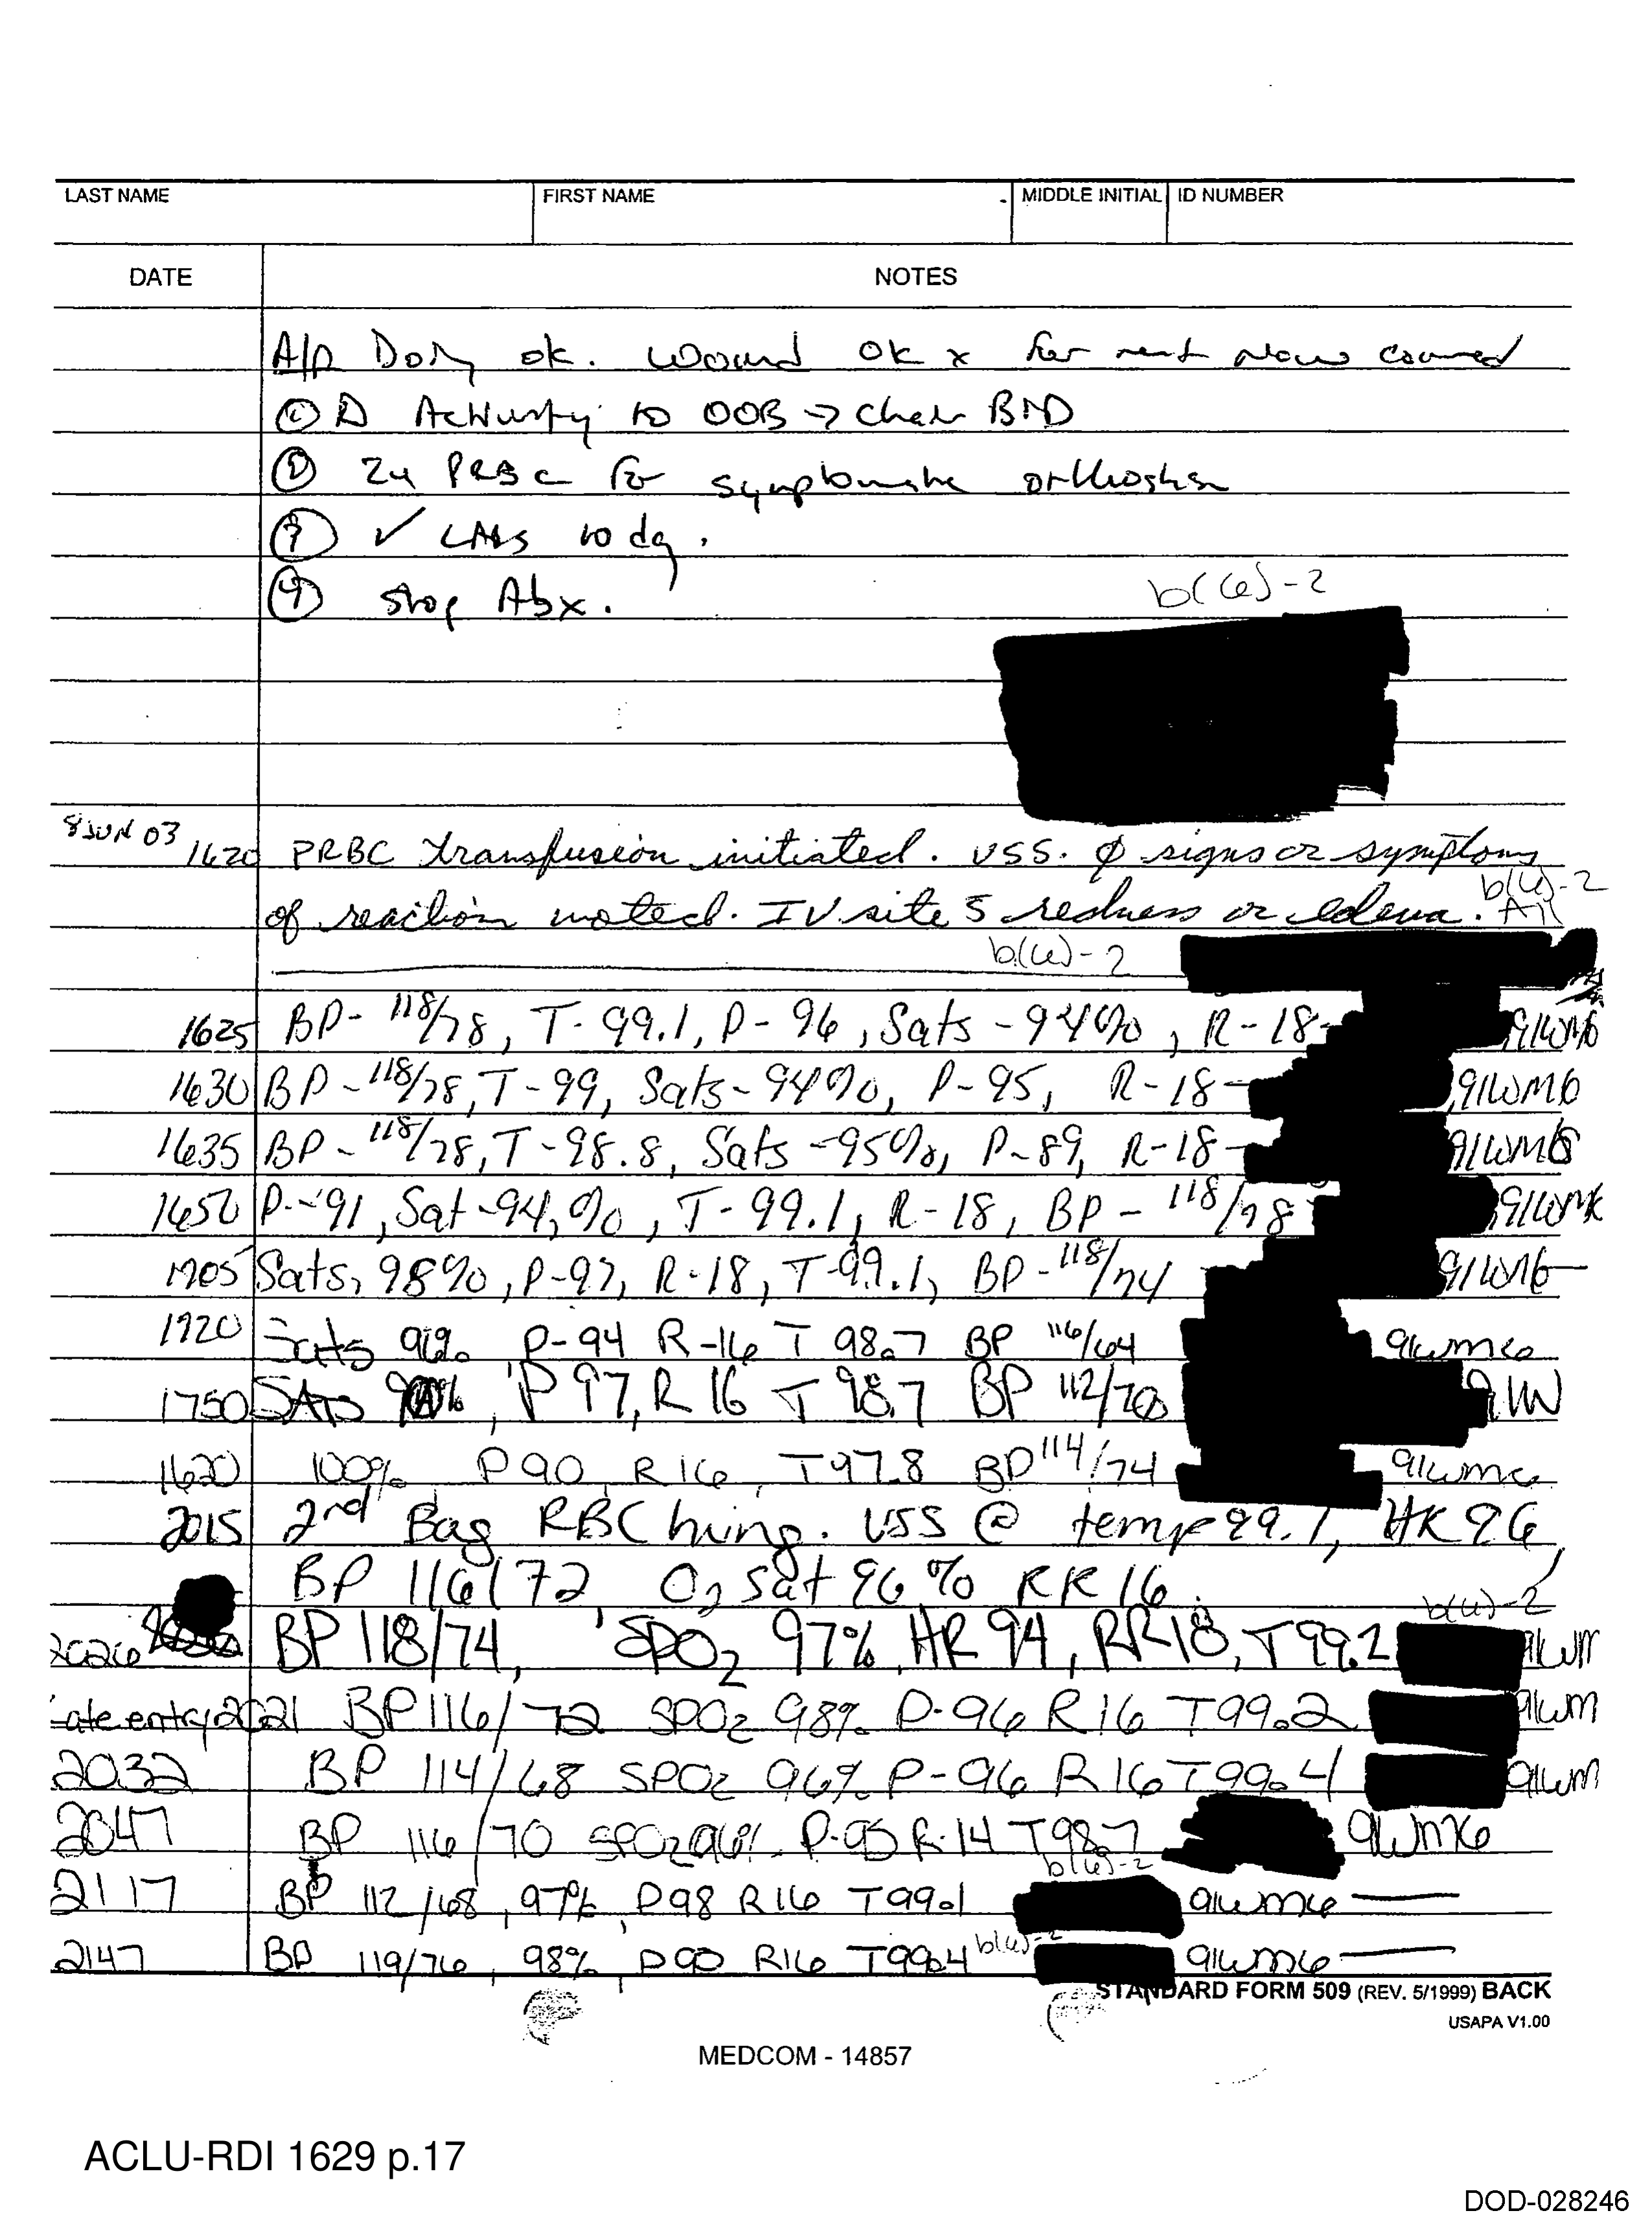 LAST NAME FIRST NAME MIDDLE INITIAL ID NUMBER
DATE NOTES
A/P Doing ok. Wound ok x for now covered
① Activity to OOB → Chair BID
② 2u PRBC for symptomatic
③ ✓ LABS today.
④ Stop Abx.
b(6)-2
8 JUN 03 1620 PRBC transfusion initiated. VSS. Ø signs or symptoms
of reaction noted. IV site s redness or edema.
b(6)-2
b(6)-2
1625 BP- 118/78, T- 99.1, P- 96, Sats - 94%, R-18- 91WM6
1630 BP - 118/78, T- 99, Sats- 94%, P-95, R-18- 91WM6
1635 BP - 118/78, T- 98.8, Sats -95%, P-89, R-18- 91WM6
1650 P- 91, Sat-94,%, T- 99.1, R-18, BP - 118/78 91WM6
1705 Sats, 98%, P-97, R-18, T-99.1, BP - 118/74 91WM6
1720 Sats 96% P-94 R-16 T 98.7 BP 116/64 91WM6
1750 SATS , P 97, R 16 T 98.7 BP 112/70 91W
1620 100% P90 R16 T97.8 BP 114/74 91WM6
2015 2nd Bag RBC hung. VSS @ temp 99.1, HR 96,
BP 116/72, O2 sat 96% RR 16.
b(6)-2
2026 BP 118/74, SPO2 97%, HR 94, RR18, T99.2 91WM
Late entry 2021 BP 116/72 SPO2 98% P-96 R16 T99.2 91WM
2032 BP 114/68 SPO2 96% P-96 R16 T99.4 91WM
2047 BP 116/70 SPO2 96% P-95 R-14 T98.7 91WM6
b(6)-2
2117 BP 112/68, 97%, P98 R16 T99.1 91WM6
2147 BP 119/76, 98%, P90 R16 T99.4 b(6)-2 91WM6
STANDARD FORM 509 (REV. 5/1999) BACK
USAPA V1.00
MEDCOM - 14857
ACLU-RDI 1629 p.17
DOD-028246